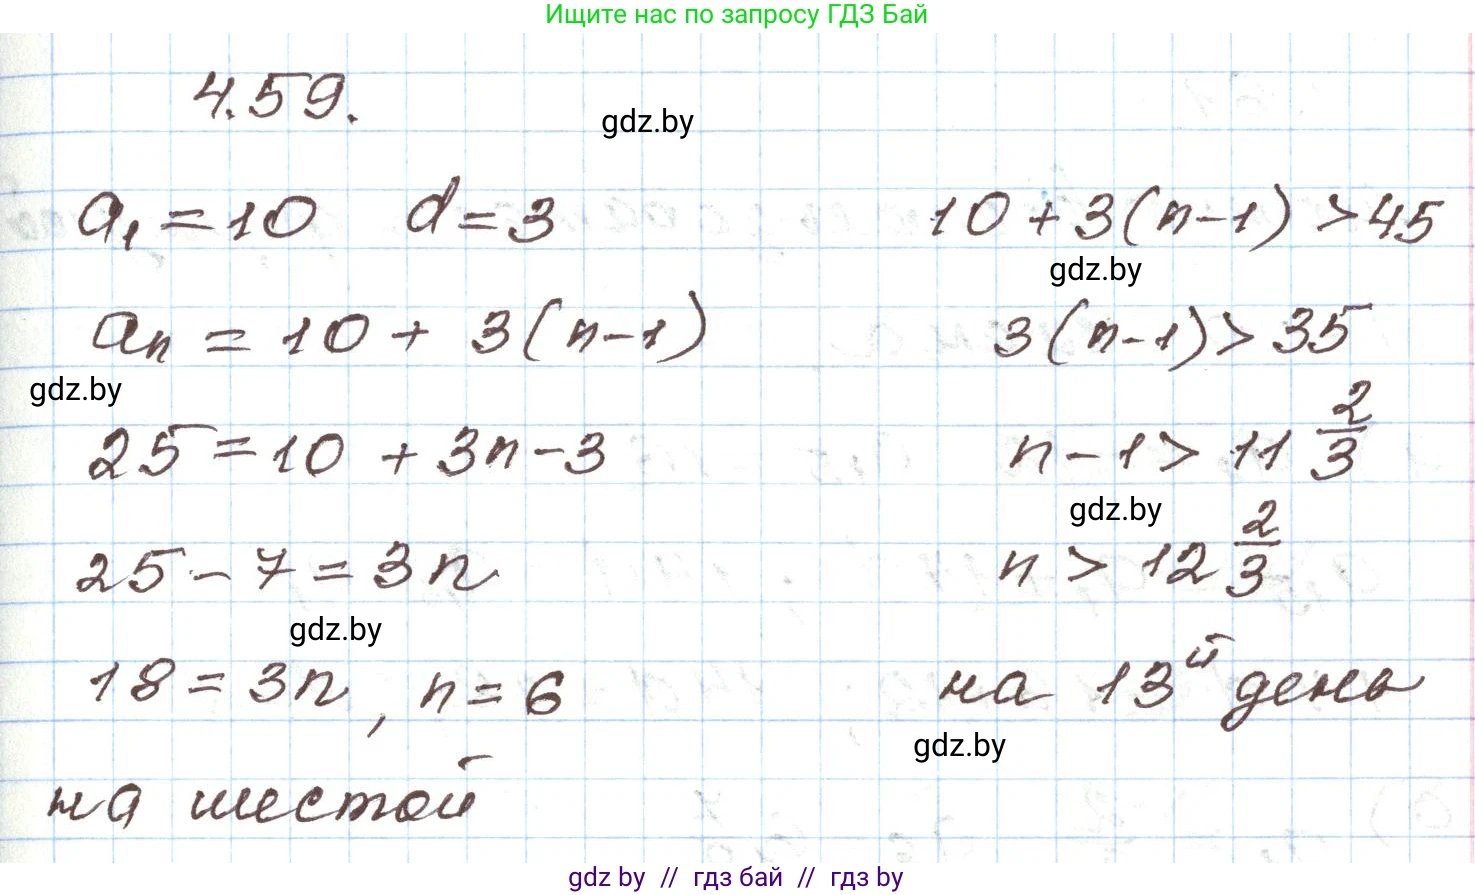 Ищите нас по запросу ГДЗ Бай
4.59.
gdz.by
a₁ = 10 d = 3
aₙ = 10 + 3(n-1)
gdz.by
25 = 10 + 3n - 3
25 - 7 = 3n
gdz.by
18 = 3n, n = 6
на шестой
10 + 3(n-1) > 45
gdz.by
3(n-1) > 35
n - 1 > 11 2/3
gdz.by
n > 12 2/3
на 13й день
gdz.by
gdz by // гдз бай // гдз by